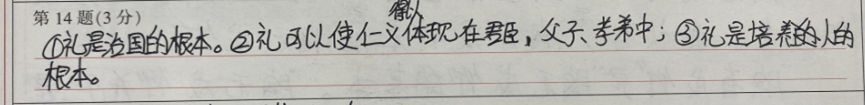 第14题(3分)
①礼是治国的根本。②礼可以使仁义得以体现在君臣,父子、孝弟中;③礼是培养的人的
根本。